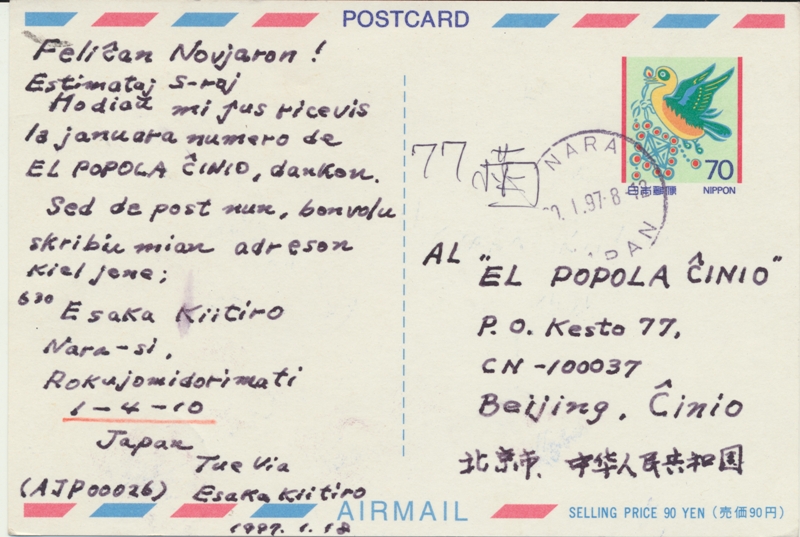 POSTCARD
Feliĉan Novjaron!
Estimataj s-raj
Hodiaŭ mi ĵus ricevis
la januara numero de
EL POPOLA ĈINIO, dankon.
Sed de post nun, bonvolu
skribu mian adreson
kiel jene;
630
Esaka Kiitiro
Nara-si,
Rokujomidorimati
1-4-10
Japan
Tue Via
(AJP00026) Esaka Kiitiro
1997.1.18
77
NARA
.1.97.8-12
JAPAN
70
日本郵便 NIPPON
AL "EL POPOLA ĈINIO"
P.O. Kesto 77,
CN-100037
Beijing, Ĉinio
北京市、中华人民共和国
AIRMAIL
SELLING PRICE 90 YEN (売価90円)